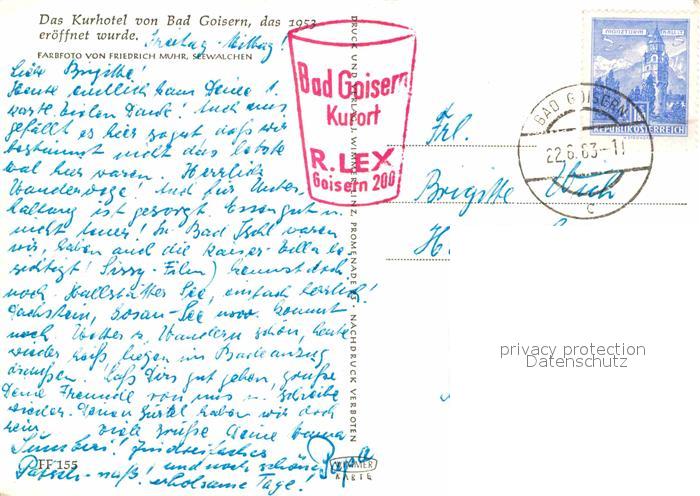 Das Kurhotel von Bad Goisern, das 1953
eröffnet wurde.
Freitag-Mittag!
FARBFOTO VON FRIEDRICH MUHR, SEEWALCHEN
Liebe Brigitte!
Heute endlich kam Deine 1.
Karte. Vielen Dank! Auch uns
gefällt es hier so gut daß wir
bestimmt nicht das letzte
mal hier waren. Herrliche
Wanderwege! Und für Unter-
haltung ist gesorgt. Essen gut u.
nicht teuer! In Bad Ischl waren
wir, haben auch die Kaiser-Villa be-
sichtigt (Sissy-Film) kennst doch
noch. Hallstätter See, einfach herrlich!
Dachstein, Gosau-See usw. kommt
noch. Wetter z. Wandern schön, heute
wieder heiß, liegen im Badeanzug
draußen. Laß Dirs gut gehen, grüße
Deine Freunde von uns u. schreibe
wieder. Deinen Gürtel haben wir doch
viele Grüße Deine
und noch schöne
erholsame Tage!
Papa
FF 155
DRUCK UND VERLAG J. WIMMER LINZ, PROMENADE - NACHDRUCK VERBOTEN
WIMMER
KARTE
Bad Goisern
Kurort
R. LEX
Goisern 200
MÜNZTURM HALL I. T.
S 3
REPUBLIK ÖSTERREICH
BAD GOISERN
22.6.63-11
c
Frl.
Brigitte
H
privacy protection
Datenschutz